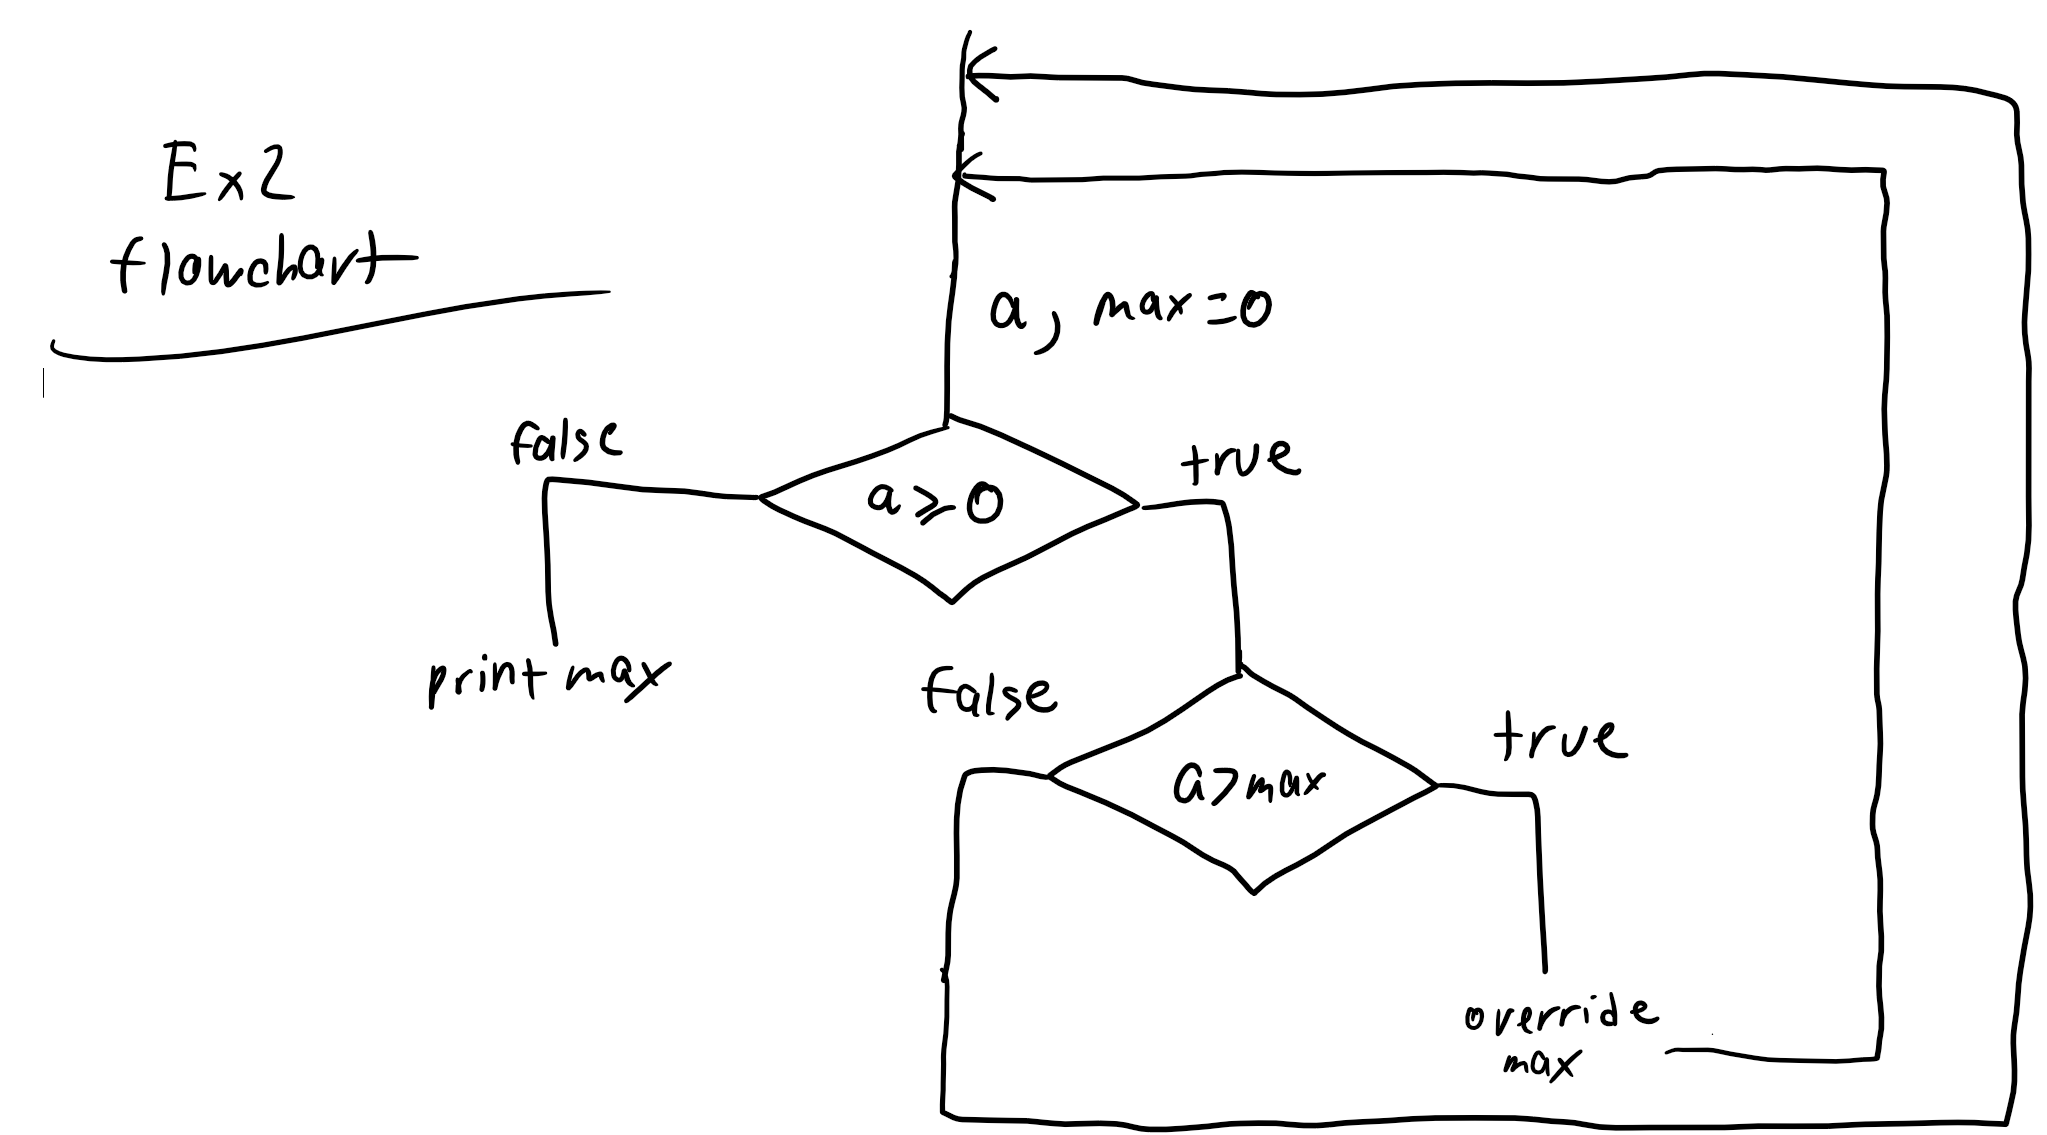 Ex2
flowchart
a, max=0
false
true
a⩾0
print max
false
true
a>max
override
max